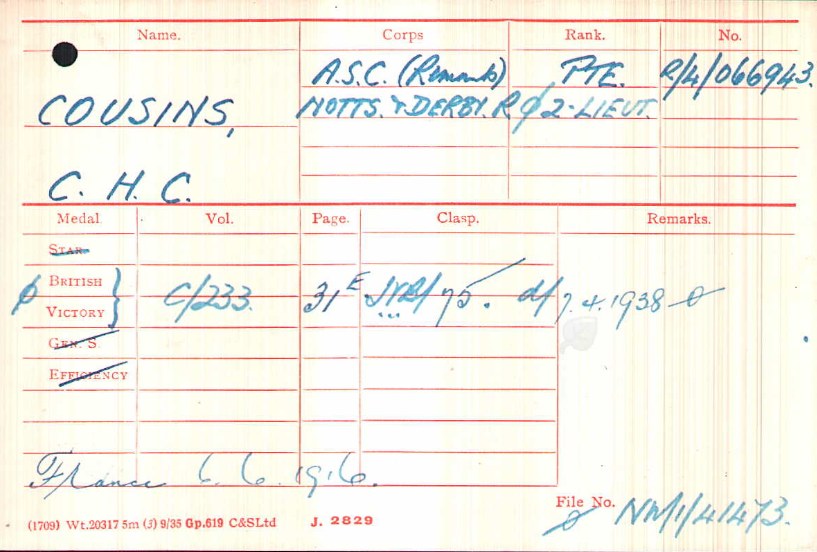 Name. Corps Rank. No.
A.S.C. (Remounts) PTE. R/4/066943.
COUSINS, NOTTS. & DERBY. R. ø 2-LIEUT.
C. H. C.
Medal Vol. Page. Clasp. Remarks.
STAR
ø BRITISH
VICTORY
C/233. 31E 75. d/7.4.1938
GEN. S.
EFFICIENCY
France 6.6.1916.
File No. NW/1/41473.
(1709) Wt.20317 5m (3) 9/35 Gp.619 C&SLtd J. 2829